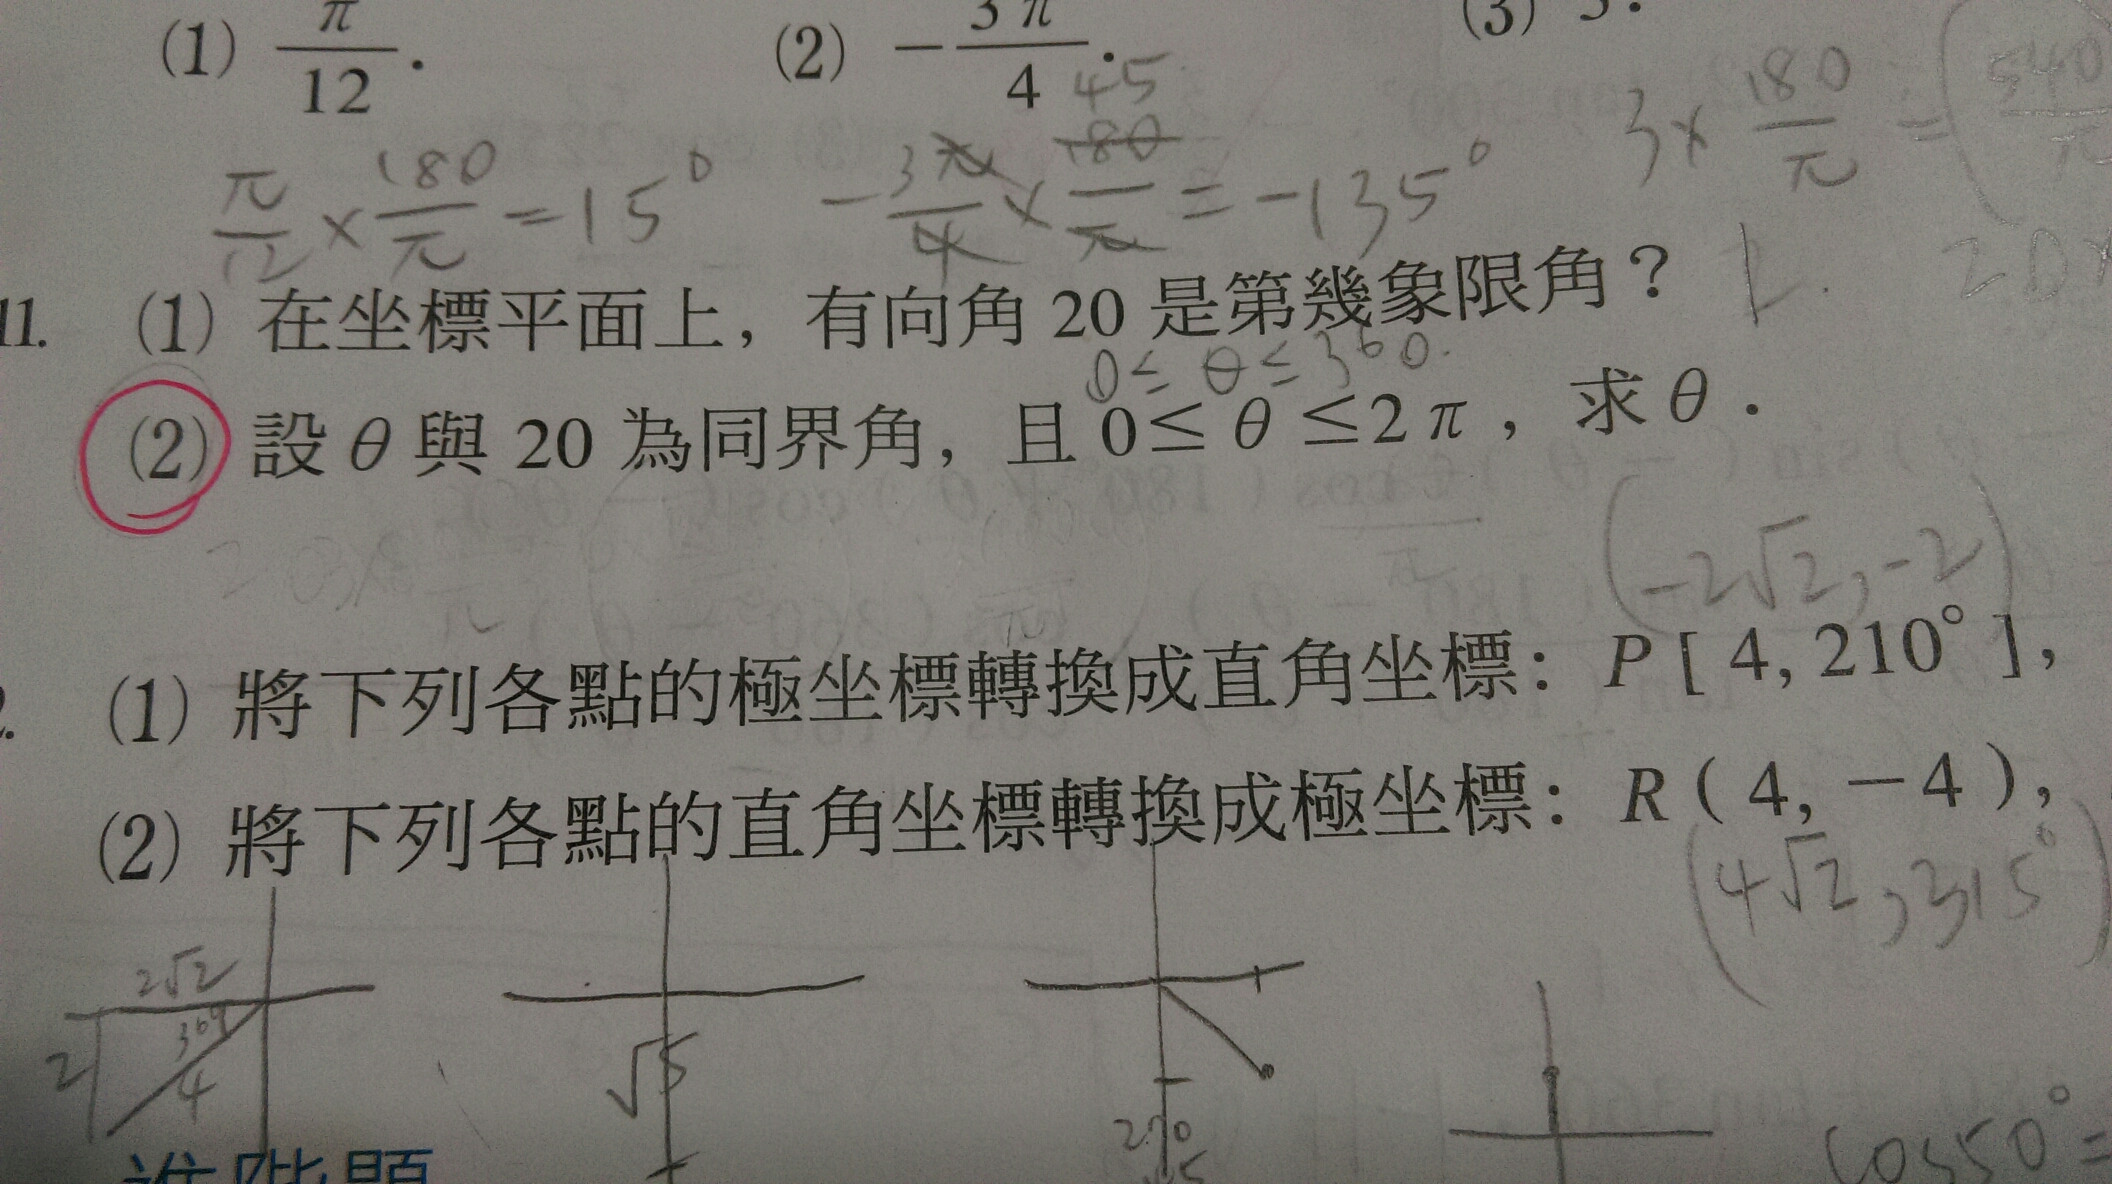 (1) π/12 . (2) −3π/4 . (3) 3.
45
π/12 × 180/π = 15° −3π/4 × 180/π = −135° 3 × 180/π = 540/π
11. (1) 在坐標平面上，有向角 20 是第幾象限角？ 1.
0≤ θ ≤ 360.
(2) 設 θ 與 20 為同界角，且 0≤ θ ≤2π，求 θ．
(−2√2, −2)
(1) 將下列各點的極坐標轉換成直角坐標：P [ 4, 210° ]，
(2) 將下列各點的直角坐標轉換成極坐標：R ( 4, −4 )，
(4√2, 315°)
2√2
30°
2 4 √5
270
45
cos50° =
進階題